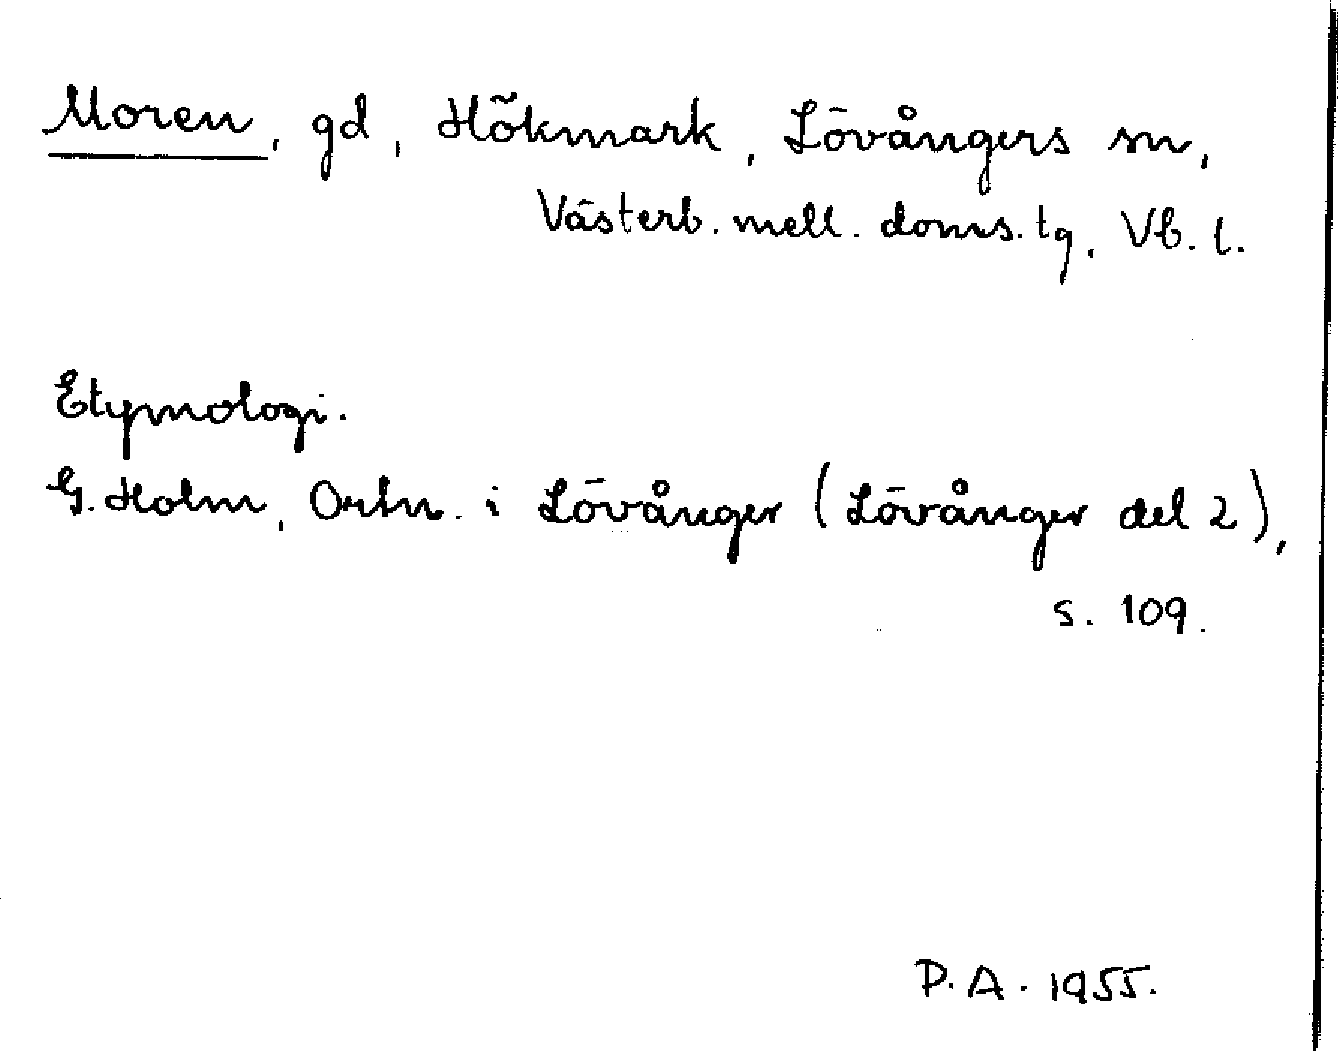 Moren, gd, Hökmark, Lövångers sn,
Västerb. mell. doms. tg, Vb. l.
Etymologi.
G. Holm, Ortn. i Lövånger (Lövånger del 2),
s. 109.
P. A. 1955.